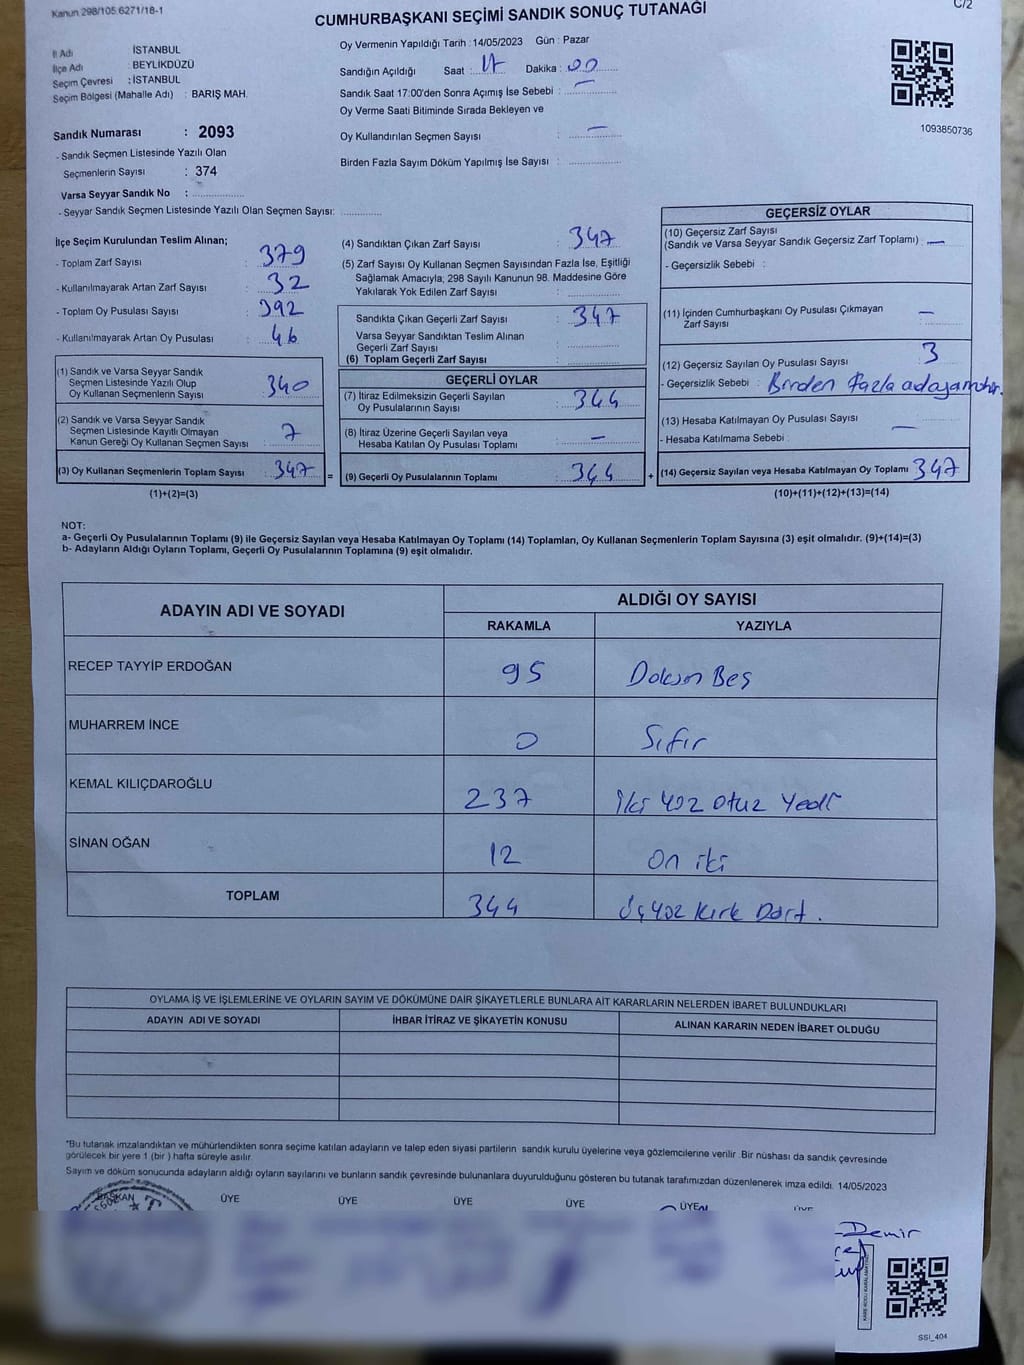 Kanun 298/105 6271/18-1
C/2
CUMHURBAŞKANI SEÇİMİ SANDIK SONUÇ TUTANAĞI
İl Adı İSTANBUL
İlçe Adı : BEYLİKDÜZÜ
Seçim Çevresi : İSTANBUL
Seçim Bölgesi (Mahalle Adı) : BARIŞ MAH.
Sandık Numarası : 2093
- Sandık Seçmen Listesinde Yazılı Olan
Seçmenlerin Sayısı : 374
Varsa Seyyar Sandık No :
- Seyyar Sandık Seçmen Listesinde Yazılı Olan Seçmen Sayısı:
Oy Vermenin Yapıldığı Tarih : 14/05/2023 Gün : Pazar
Sandığın Açıldığı Saat : 17 Dakika : 00
Sandık Saat 17:00'den Sonra Açımış İse Sebebi : —
Oy Verme Saati Bitiminde Sırada Bekleyen ve
Oy Kullandırılan Seçmen Sayısı : —
Birden Fazla Sayım Döküm Yapılmış İse Sayısı :
1093850736
İlçe Seçim Kurulundan Teslim Alınan;
- Toplam Zarf Sayısı : 379
- Kullanılmayarak Artan Zarf Sayısı : 32
- Toplam Oy Pusulası Sayısı : 392
- Kullanılmayarak Artan Oy Pusulası : 46
(1) Sandık ve Varsa Seyyar Sandık
Seçmen Listesinde Yazılı Olup
Oy Kullanan Seçmenlerin Sayısı : 340
(2) Sandık ve Varsa Seyyar Sandık
Seçmen Listesinde Kayıtlı Olmayan
Kanun Gereği Oy Kullanan Seçmen Sayısı : 7
(3) Oy Kullanan Seçmenlerin Toplam Sayısı : 347
(1)+(2)=(3)
(4) Sandıktan Çıkan Zarf Sayısı : 347
(5) Zarf Sayısı Oy Kullanan Seçmen Sayısından Fazla İse, Eşitliği
Sağlamak Amacıyla; 298 Sayılı Kanunun 98. Maddesine Göre
Yakılarak Yok Edilen Zarf Sayısı :
Sandıkta Çıkan Geçerli Zarf Sayısı : 347
Varsa Seyyar Sandıktan Teslim Alınan
Geçerli Zarf Sayısı :
(6) Toplam Geçerli Zarf Sayısı :
GEÇERLİ OYLAR
(7) İtiraz Edilmeksizin Geçerli Sayılan
Oy Pusulalarının Sayısı : 344
(8) İtiraz Üzerine Geçerli Sayılan veya
Hesaba Katılan Oy Pusulası Toplamı : —
= (9) Geçerli Oy Pusulalarının Toplamı : 344
GEÇERSİZ OYLAR
(10) Geçersiz Zarf Sayısı
(Sandık ve Varsa Seyyar Sandık Geçersiz Zarf Toplamı) : —
- Geçersizlik Sebebi :
(11) İçinden Cumhurbaşkanı Oy Pusulası Çıkmayan
Zarf Sayısı : —
(12) Geçersiz Sayılan Oy Pusulası Sayısı : 3
- Geçersizlik Sebebi : Birden fazla adaya mühür.
(13) Hesaba Katılmayan Oy Pusulası Sayısı : —
- Hesaba Katılmama Sebebi :
+ (14) Geçersiz Sayılan veya Hesaba Katılmayan Oy Toplamı : 347
(10)+(11)+(12)+(13)=(14)
NOT:
a- Geçerli Oy Pusulalarının Toplamı (9) ile Geçersiz Sayılan veya Hesaba Katılmayan Oy Toplamı (14) Toplamları, Oy Kullanan Seçmenlerin Toplam Sayısına (3) eşit olmalıdır. (9)+(14)=(3)
b- Adayların Aldığı Oyların Toplamı, Geçerli Oy Pusulalarının Toplamına (9) eşit olmalıdır.
ADAYIN ADI VE SOYADI ALDIĞI OY SAYISI
RAKAMLA YAZIYLA
RECEP TAYYİP ERDOĞAN 95 Doksan Beş
MUHARREM İNCE 0 Sıfır
KEMAL KILIÇDAROĞLU 237 İki yüz otuz Yedi
SİNAN OĞAN 12 On iki
TOPLAM 344 Üç yüz Kırk Dört.
OYLAMA İŞ VE İŞLEMLERİNE VE OYLARIN SAYIM VE DÖKÜMÜNE DAİR ŞİKAYETLERLE BUNLARA AİT KARARLARIN NELERDEN İBARET BULUNDUKLARI
ADAYIN ADI VE SOYADI İHBAR İTİRAZ VE ŞİKAYETİN KONUSU ALINAN KARARIN NEDEN İBARET OLDUĞU
*Bu tutanak imzalandıktan ve mühürlendikten sonra seçime katılan adayların ve talep eden siyasi partilerin sandık kurulu üyelerine veya gözlemcilerine verilir. Bir nüshası da sandık çevresinde
görülecek bir yere 1 (bir ) hafta süreyle asılır.
Sayım ve döküm sonucunda adayların aldığı oyların sayılarını ve bunların sandık çevresinde bulunanlara duyurulduğunu gösteren bu tutanak tarafımızdan düzenlenerek imza edildi. 14/05/2023
BAŞKAN ÜYE ÜYE ÜYE ÜYE ÜYE ÜYE
Demir
SSI_404